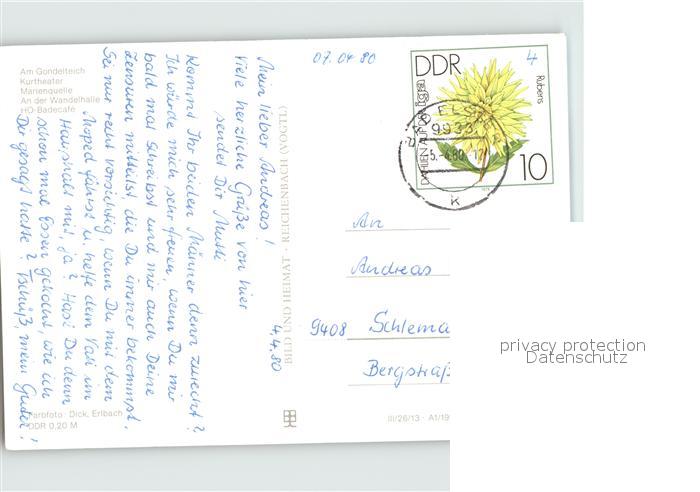 Am Gondelteich
Kurtheater
Marienquelle
An der Wandelhalle
HO-Badecafé
07.04.80
4
DDR
Rubens
DAHLIEN AUF DER
10
BAD ELSTER
9933
-5.-4.80
k
4.4.80
Mein lieber Andreas!
Viele herzliche Grüße von hier
sendet Dir Mutti
Kommt Ihr beiden Männer denn zurecht?
Ich würde mich sehr freuen, wenn Du mir
bald mal schreibst und mir auch Deine
Zensuren mitteilst, die Du immer bekommst.
Sei nur recht vorsichtig, wenn Du mit dem
Moped fährst u. helfe dem Vati im
Haushalt mit, ja? Hast Du denn
schon mal Essen gekocht, wie ich
Dir gesagt hatte? Tschüß, mein Guter!
BILD UND HEIMAT · REICHENBACH (VOGTL)
An
Andreas
9408 Schlema
Bergstraß
Farbfoto: Dick, Erlbach
DDR 0,20 M
III/26/13 · A1/19
privacy protection
Datenschutz